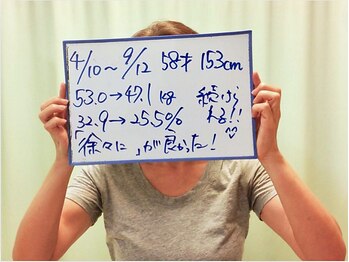 4/10〜9/12 58才 153cm
53.0→47.1kg 続けら
32.9→25.5% れる!!
「徐々に」が良かった!